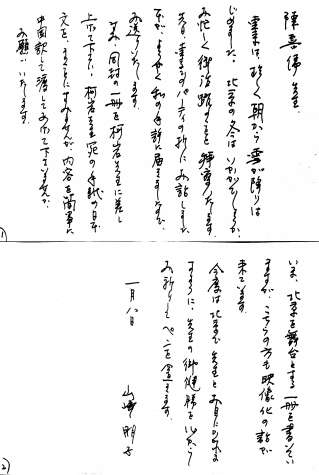 陳喜儒先生
東京は珍しく朝から雪が降りは
じめました。北京の冬はいかがでしょうか。
お忙しく御活躍のことと拝察いたします。
先日、書きのパーティの折にお話しました
本が、ようやく私の手許に届きましたので、
お送りいたします。
なお、同封の一冊を柯岩先生に差し
上げて下さい。柯岩先生宛の手紙の日本
文を、まことにすみませんが、内容を簡単に
中国訳して渡してあげて下さいませんか。
お願いいたします。
1
いま、北京を舞台とする一冊を書いてい
ますが、こちらの方も映像化の話が
来ています。
今度は北京で先生とお目にかかれま
すように、先生の御健勝を心から
お祈りしてペンを置きます。
一月八日
山崎朋子
2